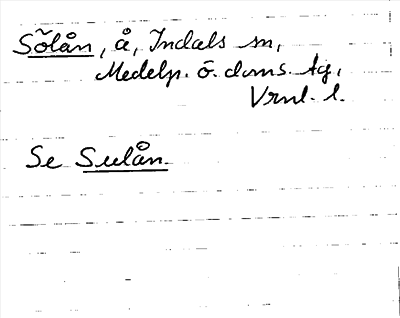 Sõlån, å, Indals sn,
Medelp. ö. doms. tg,
Vrnl. l.
Se Sulån.